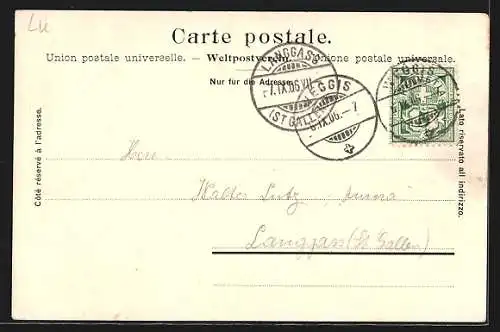 LU
Carte postale.
Union postale universelle. — Weltpostverein. — Unione postale universale.
Nur für die Adresse.
LANGGASS
-7.IX.06.VII-
(ST GALLEN)
WEGGIS
6.IX.06.-7
WEGGIS
Côté réservé à l'adresse.
Lato riservato all indirizzo.
Herrn
Walter Lutz
Langgass (St. Gallen)